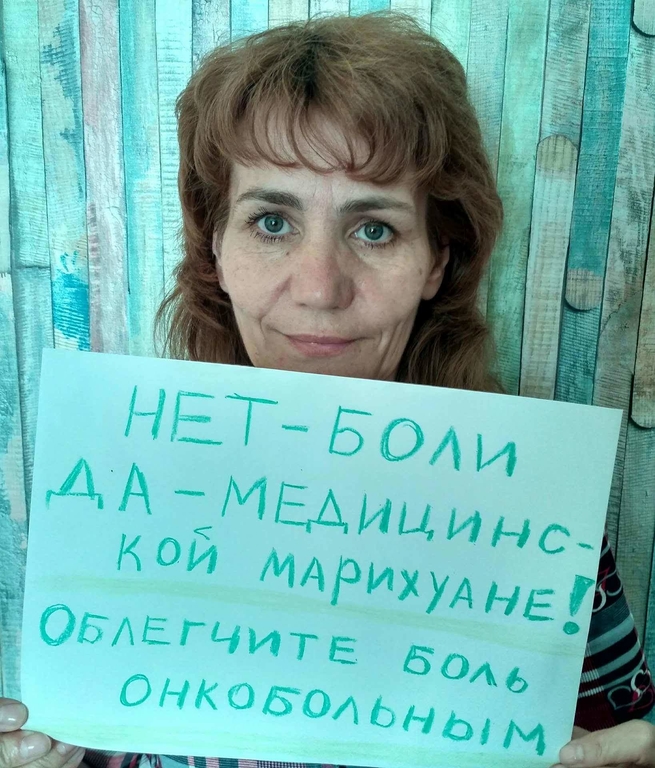 НЕТ-БОЛИ
ДА-МЕДИЦИНС-
КОЙ МАРИХУАНЕ!
ОБЛЕГЧИТЕ БОЛЬ
ОНКОБОЛЬНЫМ